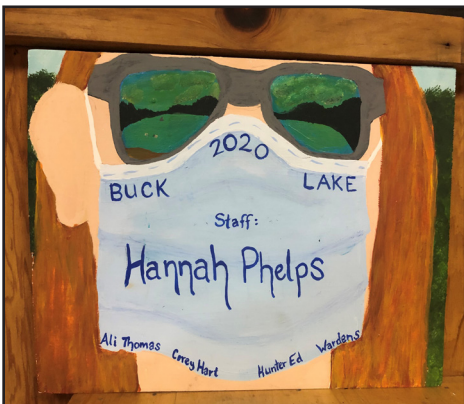 2020
BUCK LAKE
Staff:
Hannah Phelps
Ali Thomas Corey Hart Hunter Ed Wardens